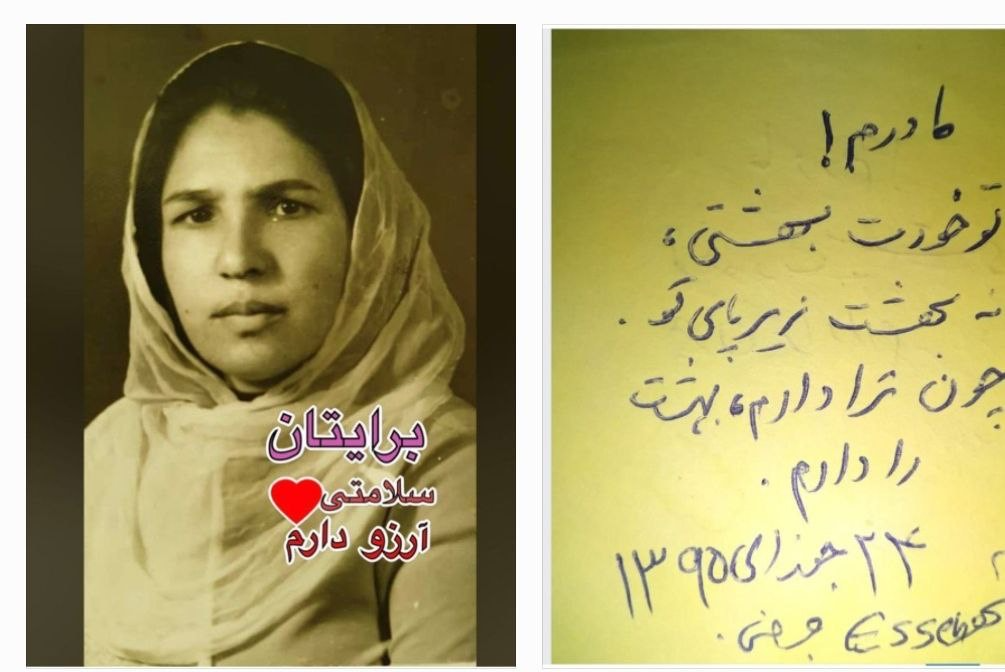 برایتان
سلامتی
آرزو دارم
مادرم!
تو خودت بهشتی،
نه بهشت زیر پای تو.
چون ترا دارم، بهشت
را دارم.
۲۴ جوزای ۱۳۹۵
Essen جرمنی.